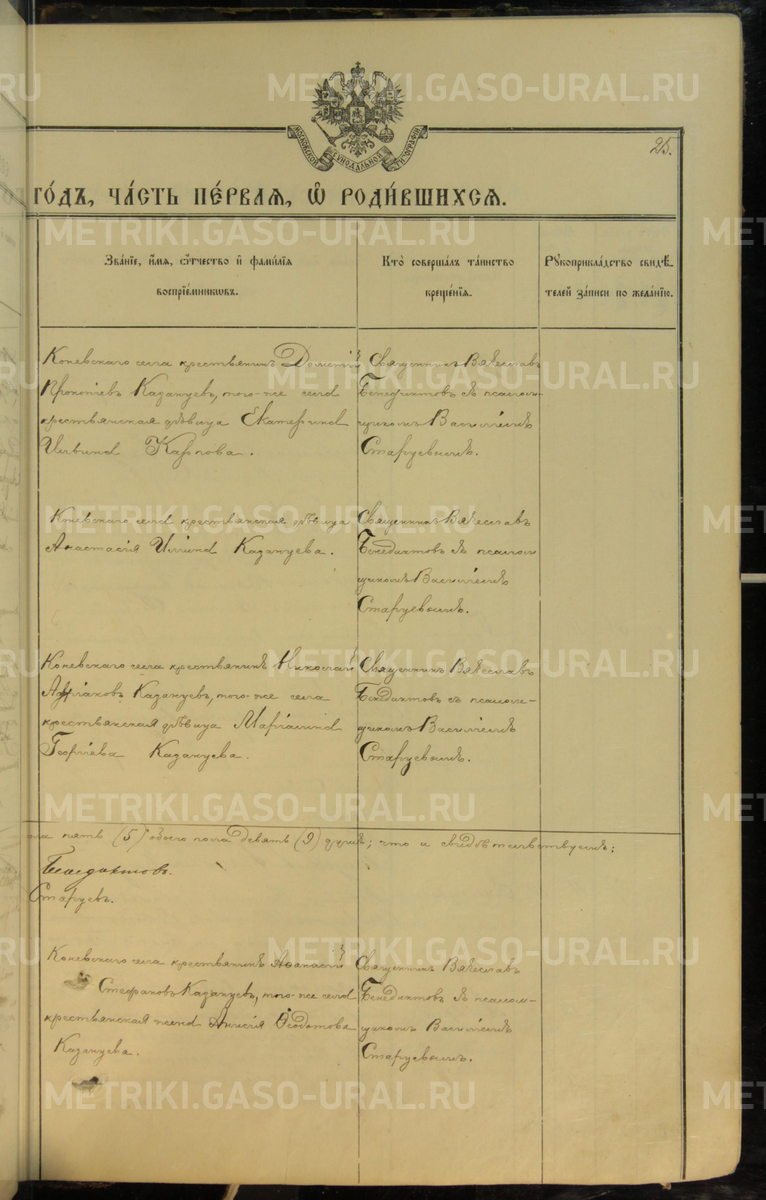 МОСКОВСКОЙ СѴНОДАЛЬНОЙ ТИПОГРАФІИ
25.
ГО́ДЪ, ЧА́СТЬ ПЕ́РВАЯ, Ѽ РОДИ́ВШИХСЯ.
Зва́нїе, и́мя, о́тчество и҆ фами́лїя
воспрїе́мниковъ.
Кто̀ соверша́лъ та́инство
креще́нїя.
Рꙋкоприкла́дство свидѣ́-
телей за́писи по жела́нїю.
Коневскаго села крестьянинъ Дометій
Прокопіевъ Казанцевъ, того-же села
крестьянская дѣвица Екатерина
Ильина Карпова.
Священникъ Вячеславъ
Бенедиктовъ съ псалом-
щикомъ Василіемъ
Старцевымъ.
Коневскаго села крестьянская дѣвица
Анастасія Ильина Казанцева.
Священникъ Вячеславъ
Бенедиктовъ съ псалом
щикомъ Василіемъ
Старцевымъ.
Коневскаго села крестьянинъ Николай
Адріановъ Казанцевъ, того-же села
крестьянская дѣвица Маріамна
Георгіева Казанцева.
Священникъ Вячеславъ
Бенедиктовъ съ псалом-
щикомъ Василіемъ
Старцевымъ.
пола пять (5) обоего пола девять (9) душъ; что и свидѣтельствуемъ:
Бенедиктовъ.
Старцевъ.
Коневскаго села крестьянинъ Аѳанасій
Стефановъ Казанцевъ, того-же села
крестьянская жена Анисія Ѳеодотова
Казанцева.
Священникъ Вячеславъ
Бенедиктовъ съ псалом-
щикомъ Василіемъ
Старцевымъ.
METRIKI.GASO-URAL.RU